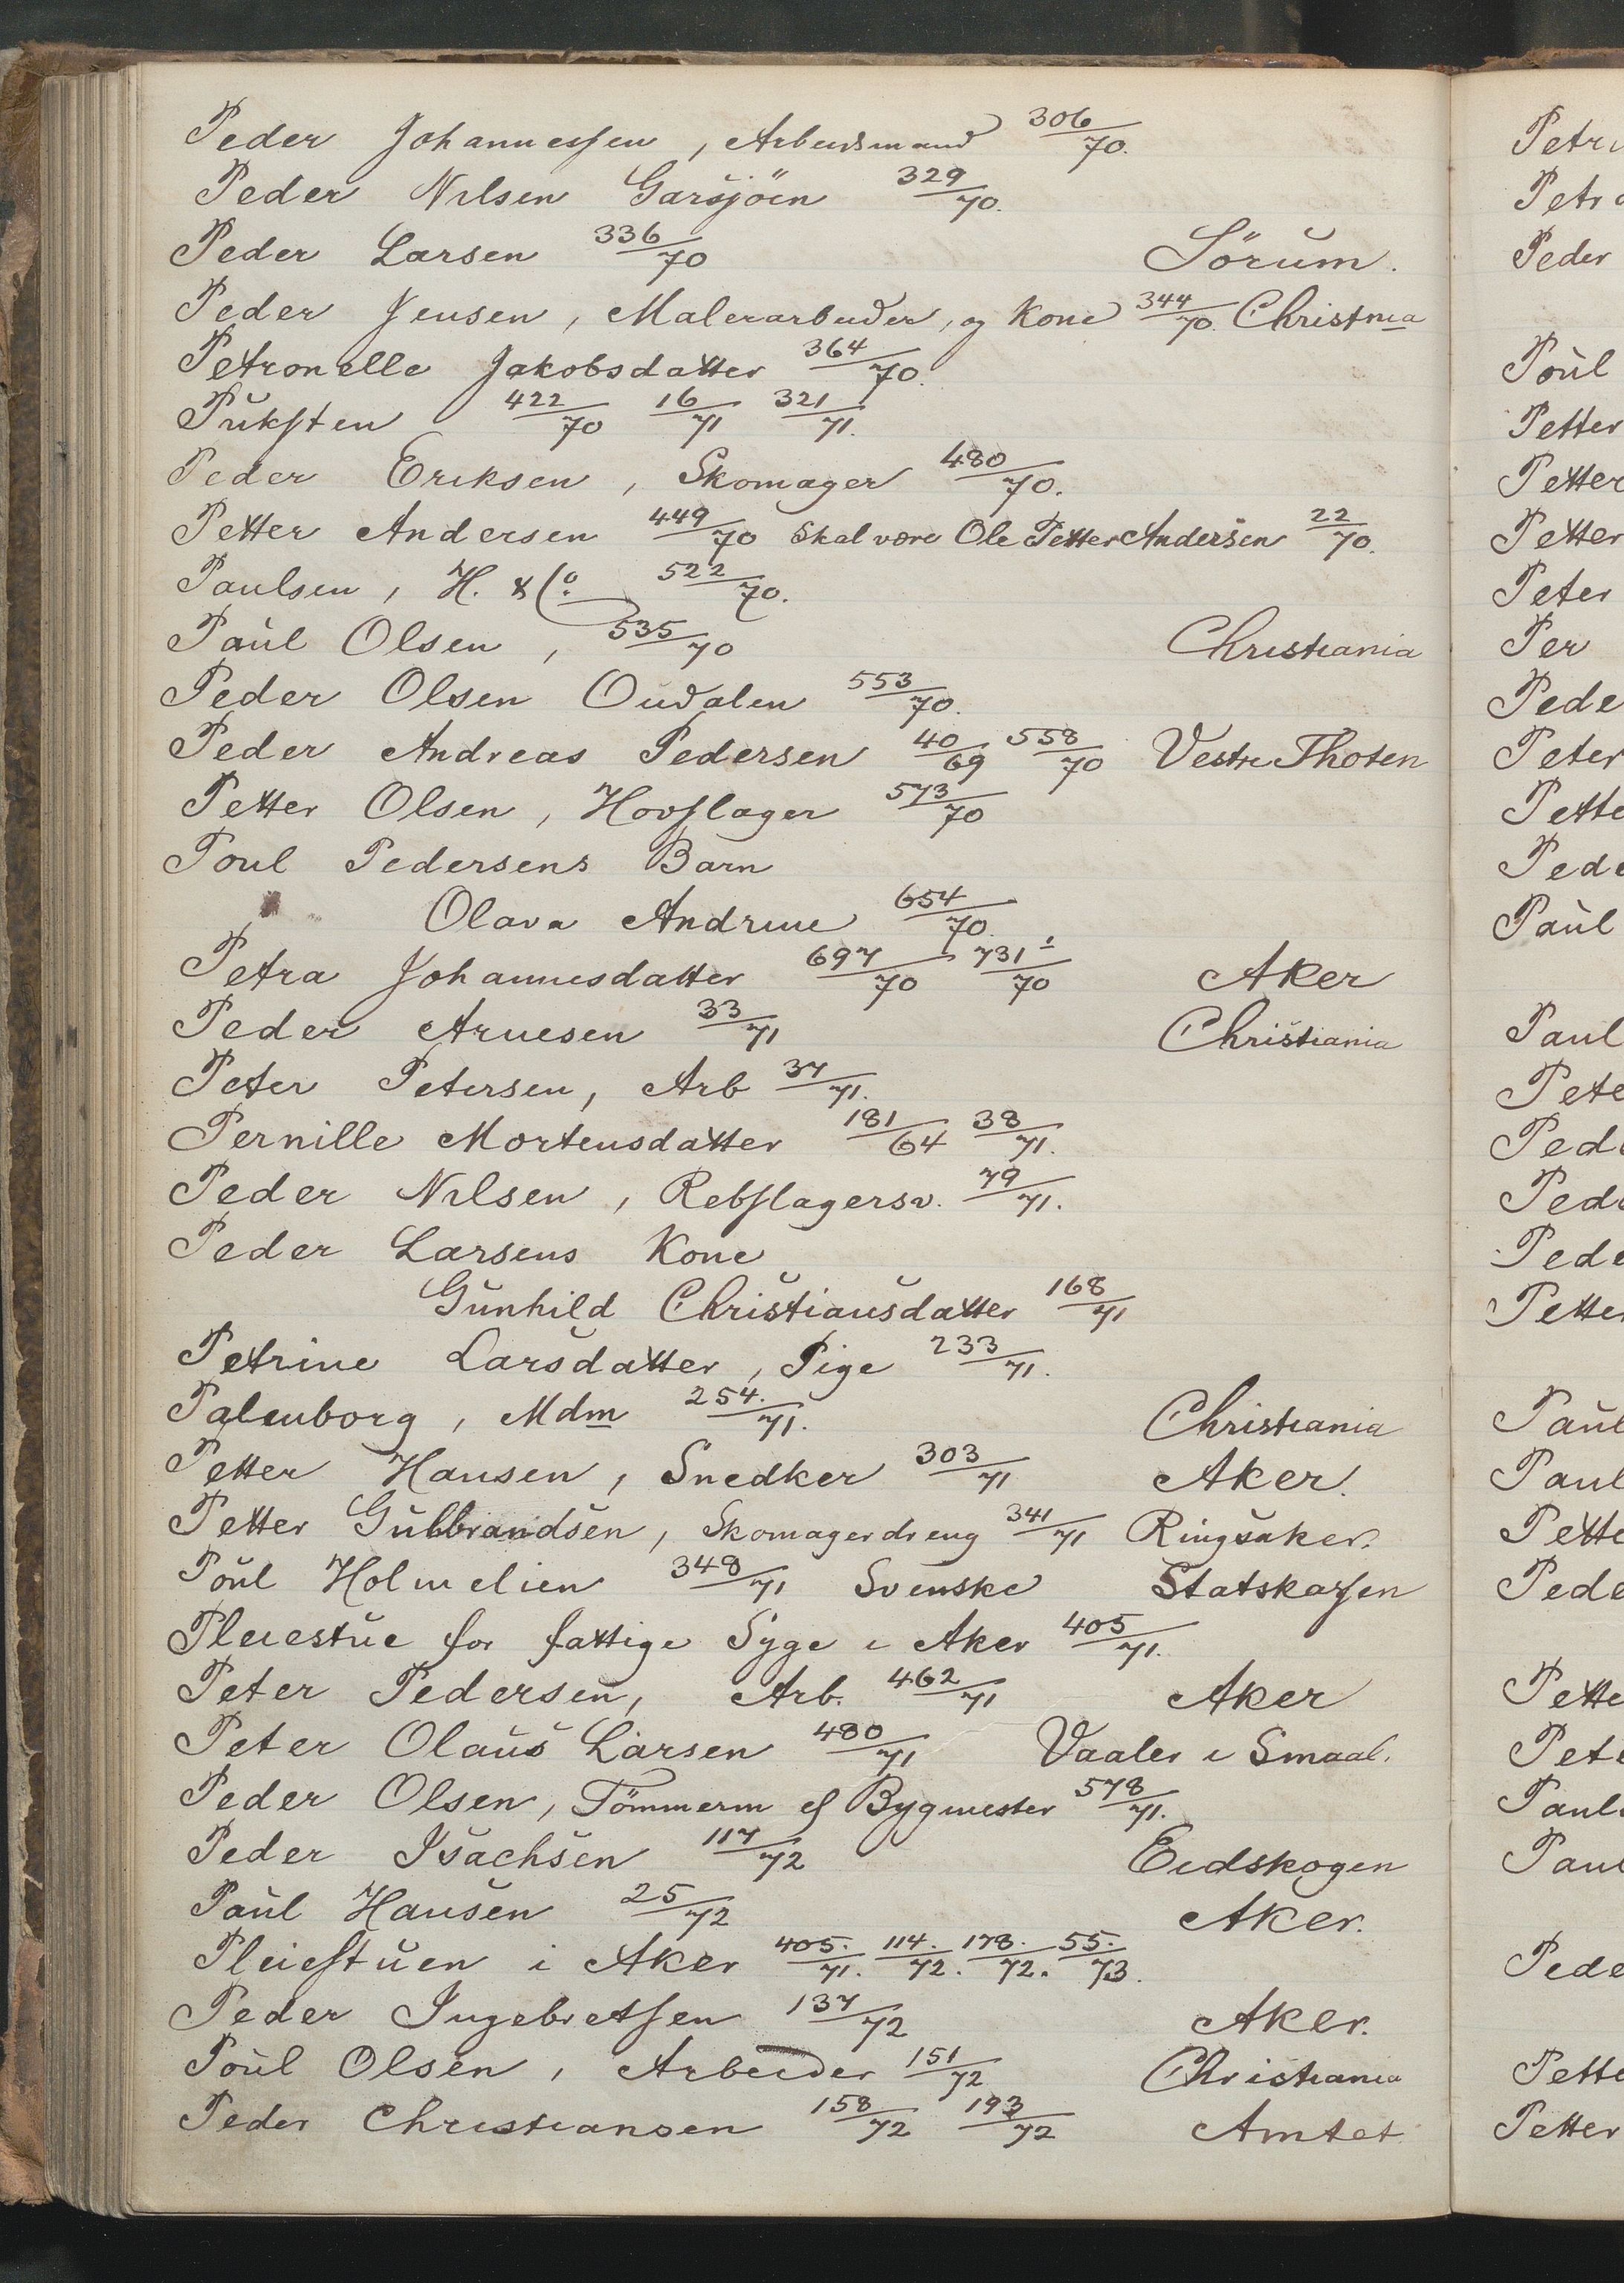 Peder Johannessen, Arbeidsmand 306/70.
Peder Nilsen Garsjöen 329/70.
Peder Larsen 336/70 Sörum.
Peder Jensen, Malerarbeider, og Kone 344/70. Christnia
Petronelle Jakobsdatter 364/70.
Puksten 422/70 16/71 321/71.
Peder Eriksen, Skomager 480/70.
Petter Andersen 449/70 Skal være Ole Petter Andersen 22/70.
Paulsen, H. & Co. 522/70.
Paul Olsen, 535/70 Christiania
Peder Olsen Oudalen 553/70.
Peder Andreas Pedersen 40/69 558/70 Vestre Thoten
Petter Olsen, Hovslager 573/70
Poul Pedersens Barn
Olava Andrine 654/70.
Petra Johannesdatter 697/70 731/70 Aker
Peder Arnesen 33/71 Christiania
Peter Petersen, Arb 37/71.
Pernille Mortensdatter 181/64 38/71.
Peder Nilsen, Rebslagersv. 79/71.
Peder Larsens Kone
Gunhild Christiansdatter 168/71
Petrine Larsdatter, Pige 233/71.
Palenborg, Mdm 254./71. Christiania
Petter Hansen, Snedker 303/71 Aker.
Petter Gulbrandsen, Skomagerdreng 341/71 Ringsaker.
Poul Holmelien 348/71 Svenske Statskassen
Pleiestue for fattige Syge i Aker 405/71.
Peter Pedersen, Arb. 462/71 Aker
Peter Olaus Larsen 480/71 Vaaler i Smaal.
Peder Olsen, Tömmerm og Bygmester 578/71.
Peder Isachsen 117/72 Eidskogen
Paul Hansen 25/72 Aker.
Pleiestuen i Aker 405./71. 114./72. 178./72. 55./73.
Peder Ingebretsen 137/72 Aker.
Poul Olsen, Arbeider 151/72 Christiania
Peder Christiansen 158/72 193/72 Amtet
Peder
Poul
Petter
Petter
Petter
Peter
Per
Peter
Paul
Paul